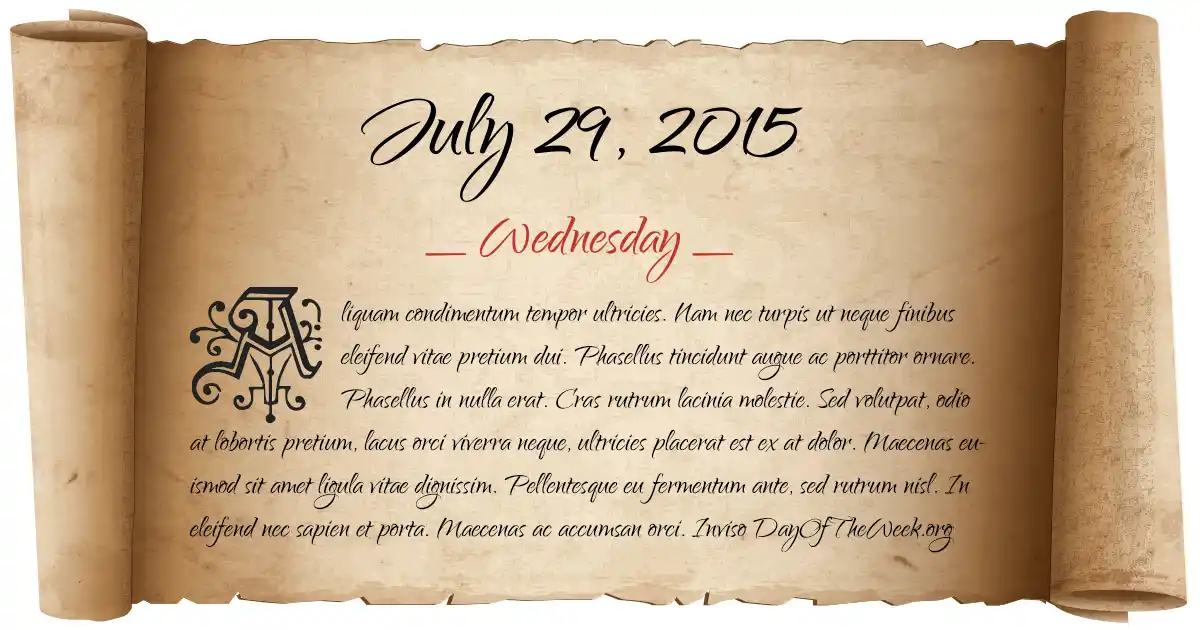 July 29, 2015
— Wednesday —
Aliquam condimentum tempor ultricies. Nam nec turpis ut neque finibus
eleifend vitae pretium dui. Phasellus tincidunt augue ac porttitor ornare.
Phasellus in nulla erat. Cras rutrum lacinia molestie. Sed volutpat, odio
at lobortis pretium, lacus orci viverra neque, ultricies placerat est ex at dolor. Maecenas eu-
ismod sit amet ligula vitae dignissim. Pellentesque eu fermentum ante, sed rutrum nisl. In
eleifend nec sapien et porta. Maecenas ac accumsan orci. Inviso DayOfTheWeek.org